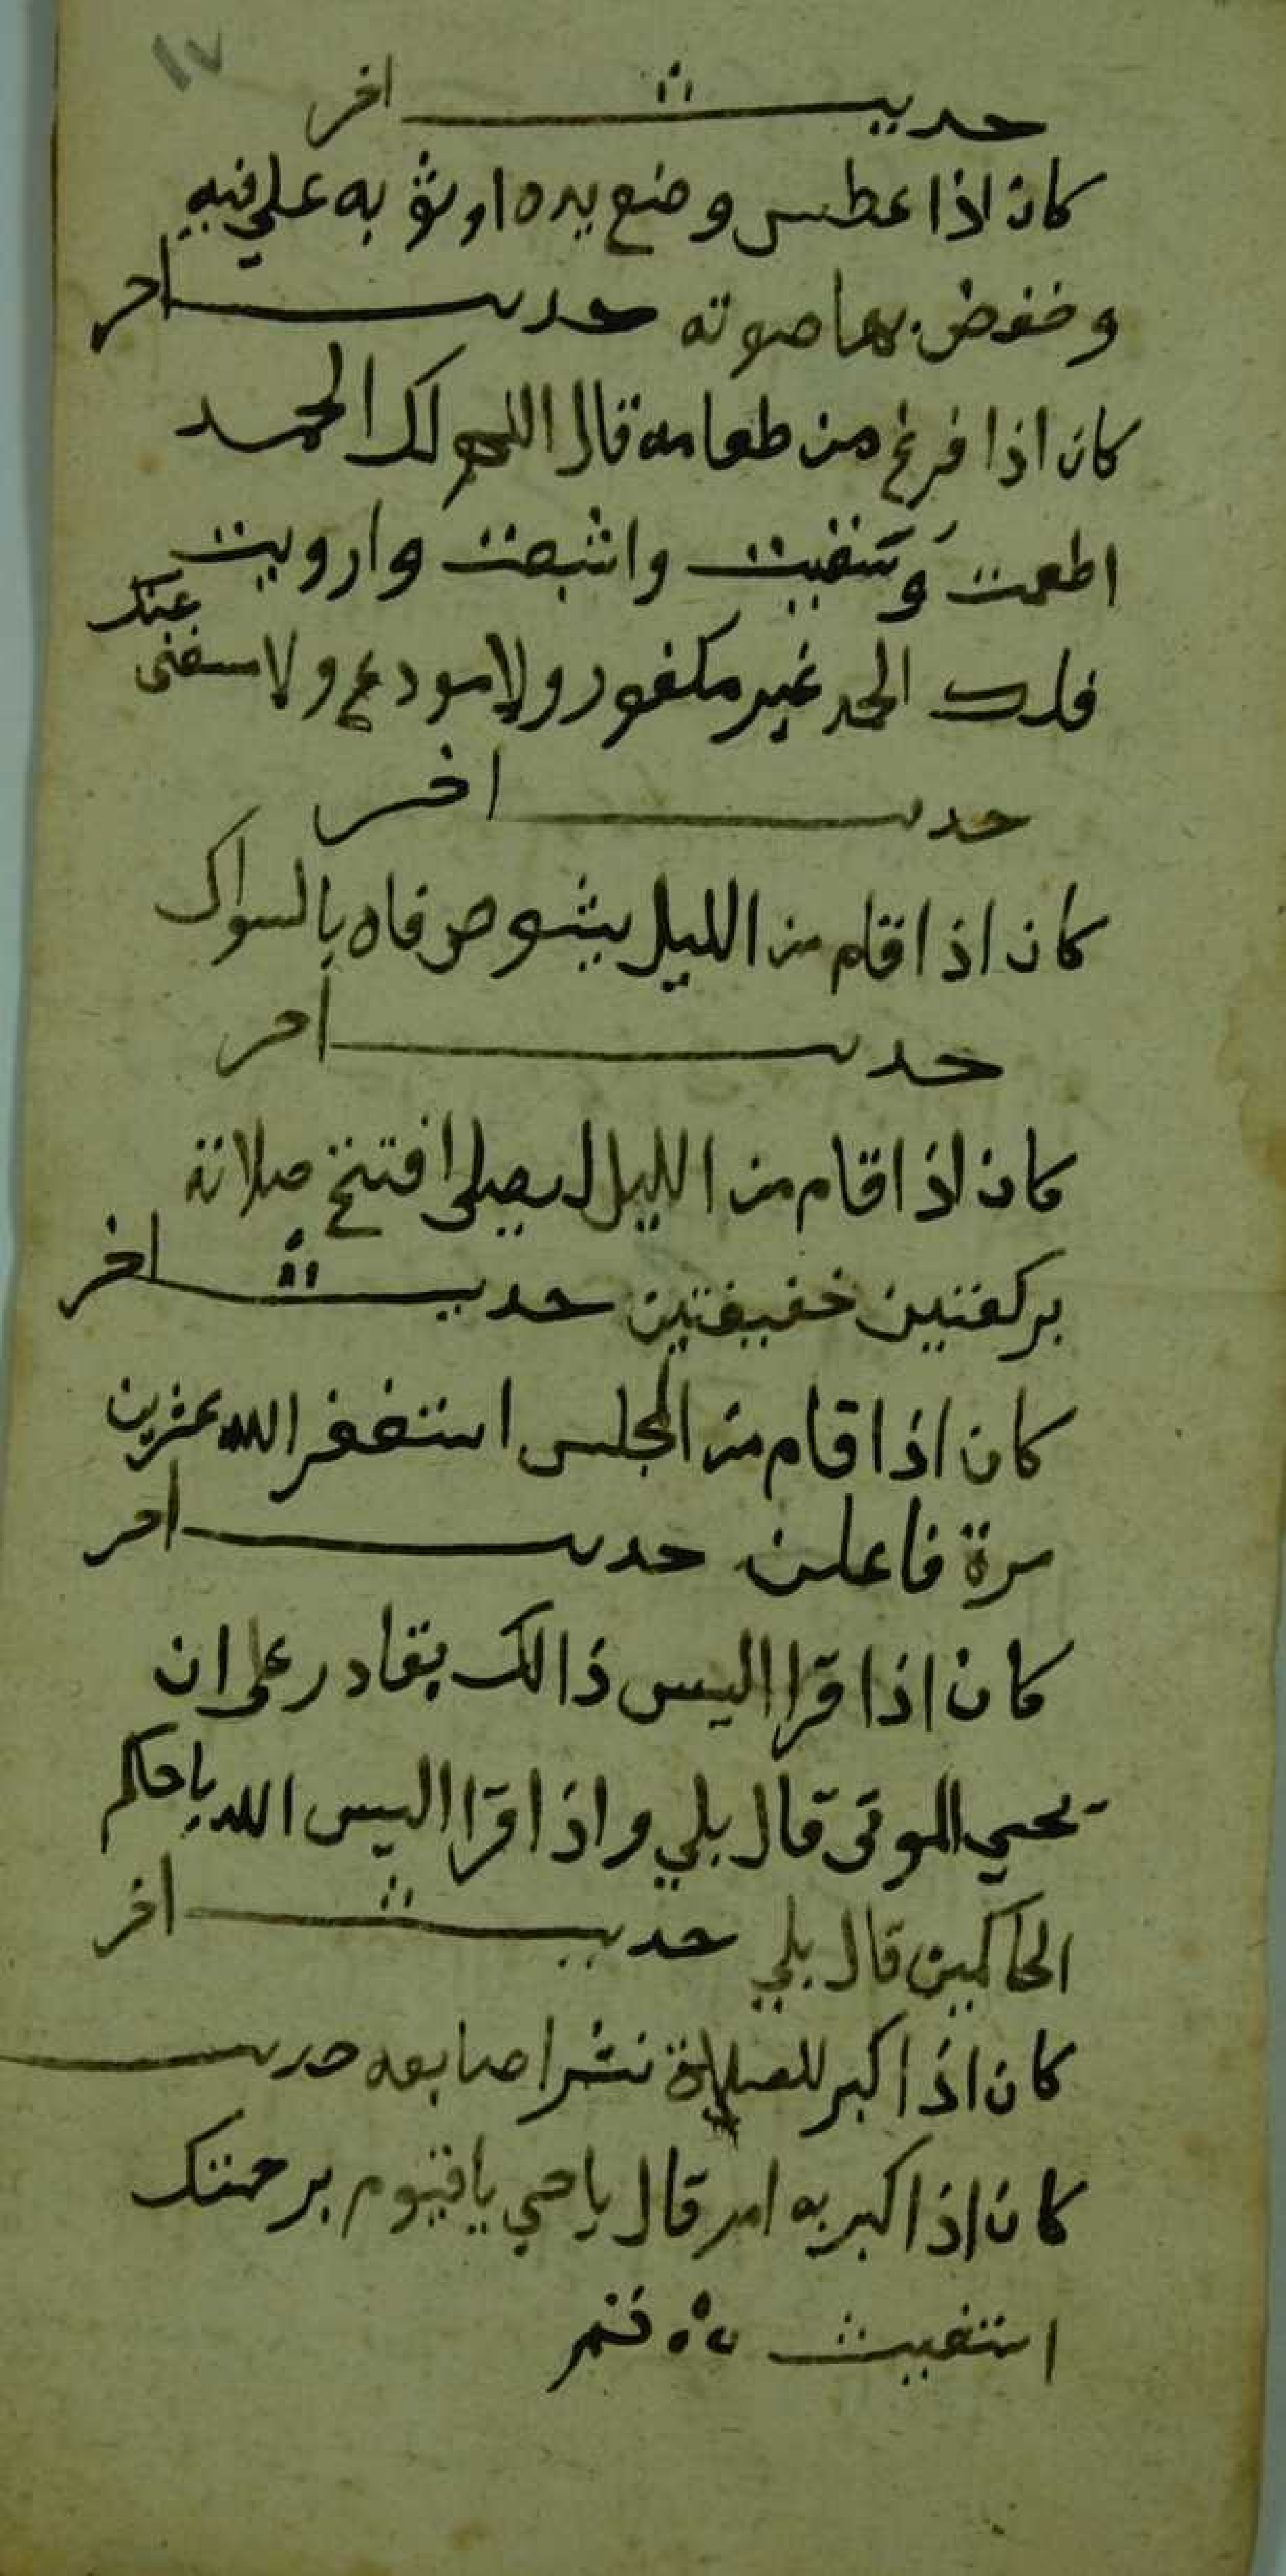 ١٧
حديث اخر
كان اذا عطس وضع يده او ثوبه علي فيه
وخفض بها صوته حديث اخر
كان اذا فرغ من طعامه قال اللهم لك الحمد
اطعمت وسقيت واشبعت وارويت
فلك الحمد غير مكفور ولا مودع ولا مستغنى عنك
حديث اخر
كان اذا قام من الليل يشوص فاه بالسواك
حديث اخر
كان اذا قام من الليل ليصلى افتتح صلاته
بركعتين خفيفتين حديث اخر
كان اذا قام من المجلس استغفر الله عشرين
مرة فاعلن حديث اخر
كان اذا قرا اليس ذالك بقادر على ان
يحيي الموتى قال بلي واذا قرا اليس الله باحكم
الحاكمين قال بلي حديث اخر
كان اذا كبر للصلاة نشر اصابعه حديث
كان اذا كبر به امر قال ياحي ياقيوم برحمتك
استغيث